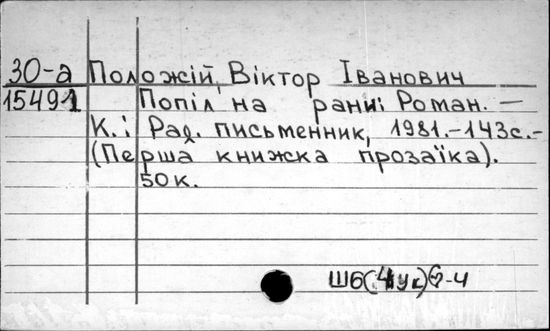 30-а Положій, Віктор Іванович
15491 Попіл на рани: Роман. —
К.: Рад. письменник, 1981.-143с.-
(Перша книжка прозаїка).
50к.
Ш6(4ук)6-4